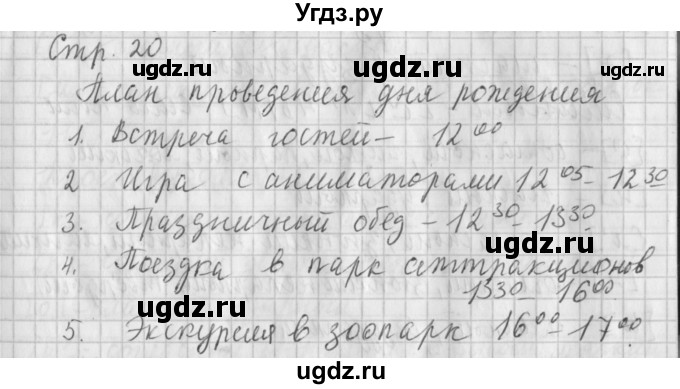 Угдз.ру
Стр. 20
ugdz.ru ugdz.ru
План проведения дня рождения
1. Встреча гостей – 12⁰⁰
ugdz.ru ugdz.ru
2 Игра с аниматорами 12⁰⁵ – 12³⁰
3. Праздничный обед – 12³⁰ – 13³⁰
ugdz.ru ugdz.ru
4. Поездка в парк аттракционов
13³⁰ – 16⁰⁰
ugdz.ru ugdz.ru
5. Экскурсия в зоопарк 16⁰⁰ – 17⁰⁰.
Угдз.ру